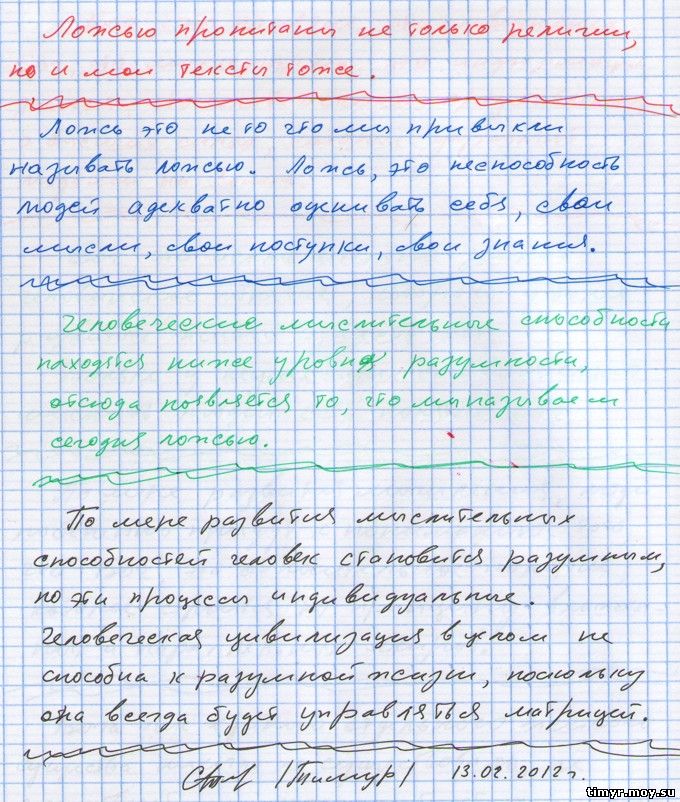 Ложью пропитаны не только религии,
но и мои тексты тоже.
Ложь это не то что мы привыкли
называть ложью. Ложь, это неспособность
людей адекватно оценивать себя, свои
мысли, свои поступки, свои знания.
Человеческие мыслительные способности
находятся ниже уровня разумности,
отсюда появляется то, что мы называем
сегодня ложью.
По мере развития мыслительных
способностей человек становится разумным,
но эти процессы индивидуальные.
Человеческая цивилизация в целом не
способна к разумной жизни, поскольку
она всегда будет управляться матрицей.
/Тимур/ 13.02.2012г.
timyr.moy.su